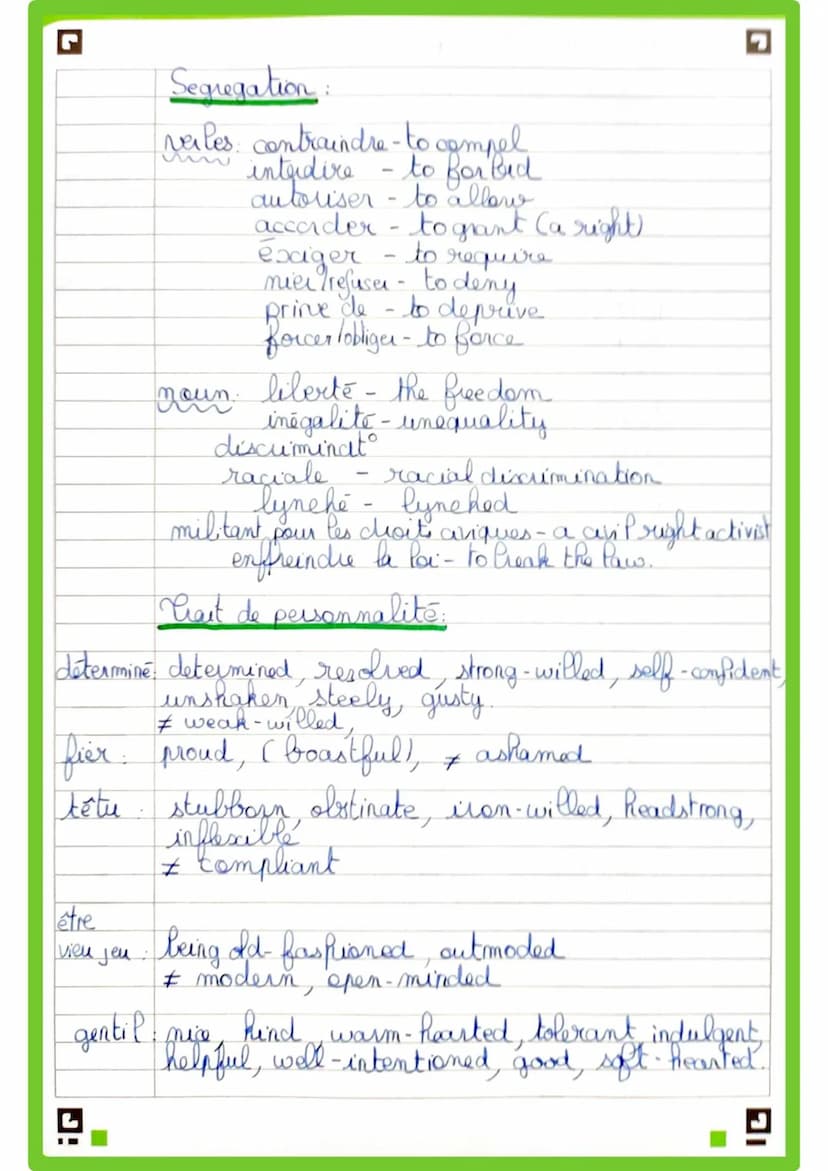 Segregation :
verbes : contraindre - to compel
interdire - to forbid
autoriser - to allow
accorder - to grant (a right)
éxiger - to require
nier/refuser - to deny
prive de - to deprive
forcer/obliger - to force
noun : liberté - the freedom
inégalité - unequality
discriminat°
raciale - racial discrimination
lynché - lynched
militant pour les droits civiques - a civil right activist
enffreindre la loi - to break the law.
Trait de personnalité :
déterminé : determined, resolved, strong-willed, self-confident,
unshaken, steely, gusty.
≠ weak-willed,
fier : proud, (boastful), ≠ ashamed
têtu : stubborn, obstinate, iron-willed, headstrong,
inflexible
≠ compliant
être
vieu jeu : being old-fashioned, outmoded
≠ modern, open-minded
gentil : nice, kind, warm-hearted, tolerant, indulgent,
helpful, well-intentioned, good, soft-hearted.